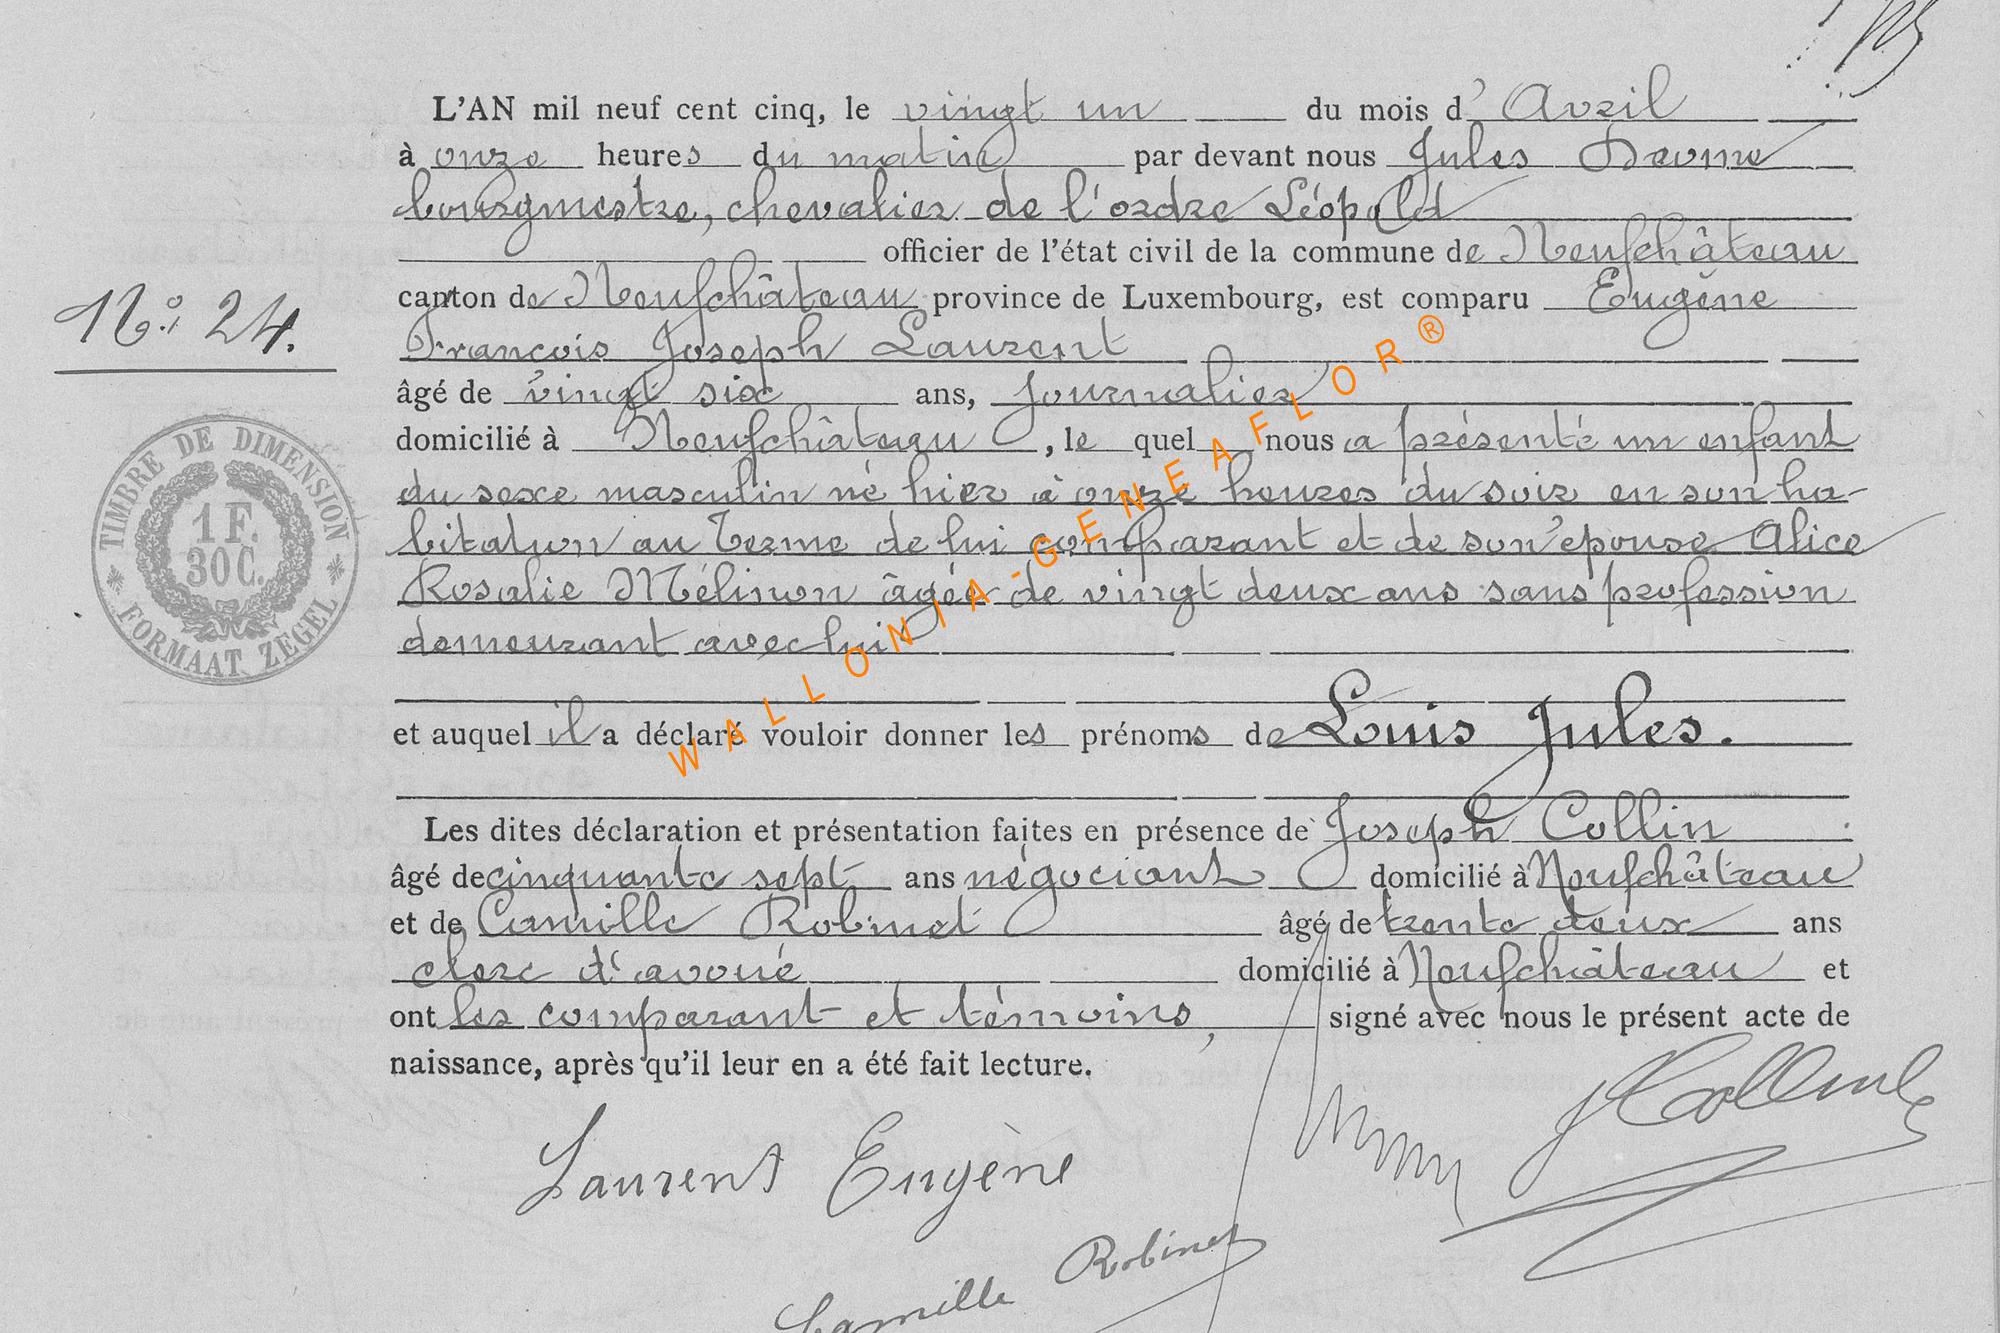 L'AN mil neuf cent cinq, le vingt un du mois d'Avril
à onze heures du matin par devant nous Jules
bourgmestre, chevalier de l'ordre Léopold
officier de l'état civil de la commune de Neufchâteau
canton de Neufchâteau province de Luxembourg, est comparu Eugène
N.° 24.
François Joseph Laurent
âgé de vingt six ans, journalier
domicilié à Neufchâteau, le quel nous a présenté un enfant
du sexe masculin né hier à onze heures du soir en son ha-
bitation au Terme de lui comparant et de son épouse Alice
Rosalie Mélinon âgée de vingt deux ans sans profession
demeurant avec lui
TIMBRE DE DIMENSION
1 F.
30 C.
FORMAAT ZEGEL
WALLONIA-GENEAFLOR®
et auquel il a déclaré vouloir donner les prénoms de Louis Jules.
Les dites déclaration et présentation faites en présence de Joseph Collin
âgé de cinquante sept ans négociant domicilié à Neufchâteau
et de Camille Robinet âgé de trente deux ans
clerc d'avoué domicilié à Neufchâteau et
ont les comparant et témoins, signé avec nous le présent acte de
naissance, après qu'il leur en a été fait lecture.
Laurent Eugène
Camille Robinet